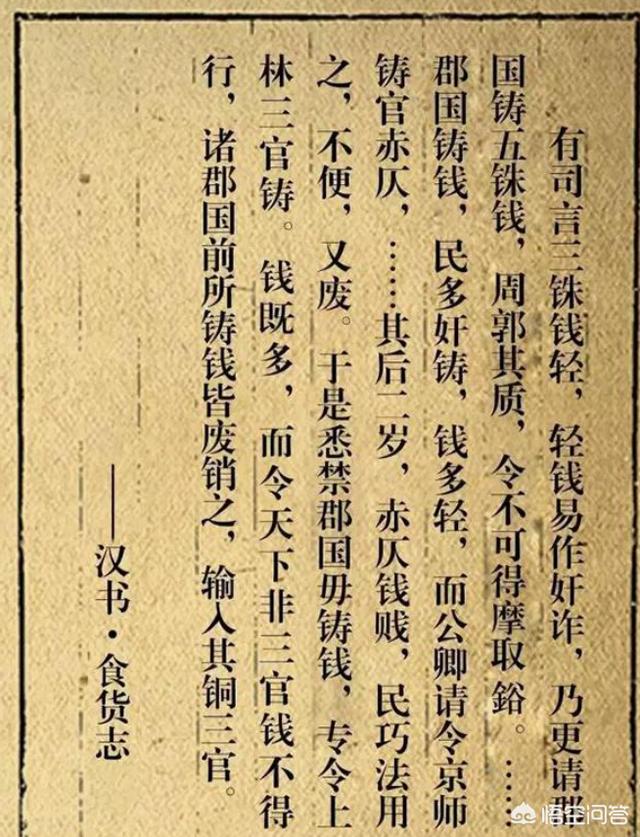 有司言三铢钱轻，轻钱易作奸诈，乃更请郡
国铸五铢钱，周郭其质，令不可得摩取鋊。……
郡国铸钱，民多奸铸，钱多轻，而公卿请令京师
铸官赤仄，……其后二岁，赤仄钱贱，民巧法用
之，不便，又废。于是悉禁郡国毋铸钱，专令上
林三官铸。钱既多，而令天下非三官钱不得
行，诸郡国前所铸钱皆废销之，输入其铜三官。
——汉书·食货志
悟空问答